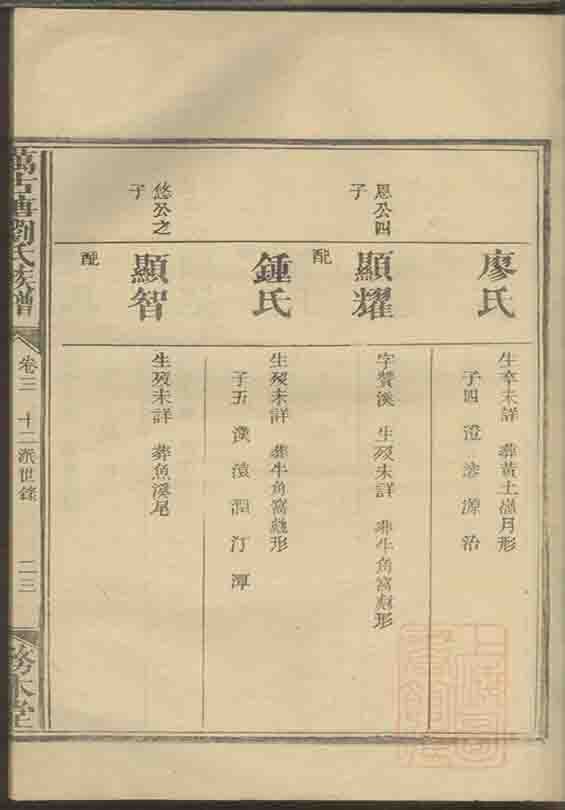 廖氏
生卒未詳 葬黃土嶺月形
子四 澄 源 治
恩公四
子
顯耀
字贊溪 生歿未詳 葬牛角窩形
配
鍾氏
生歿未詳 葬牛角窩形
子五 濮 淵 汀 潭
悠公之
子
顯智
生歿未詳 葬魚溪尾
配
萬古塘劉氏族譜
卷三 十二派世錄
二三
務本堂